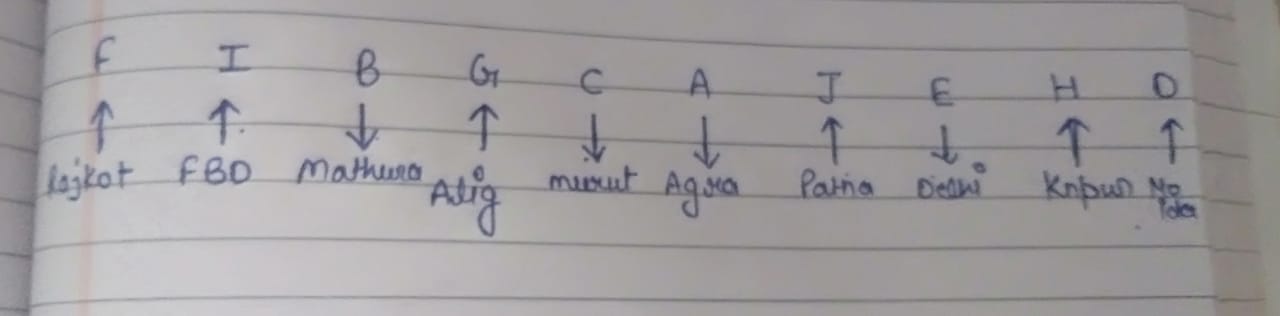 F I B G C A J E H D
↑ ↑ ↓ ↑ ↓ ↓ ↑ ↓ ↑ ↑
Rajkot FBD Mathura Alig merut Agra Patna Delhi Knpur No
Idea